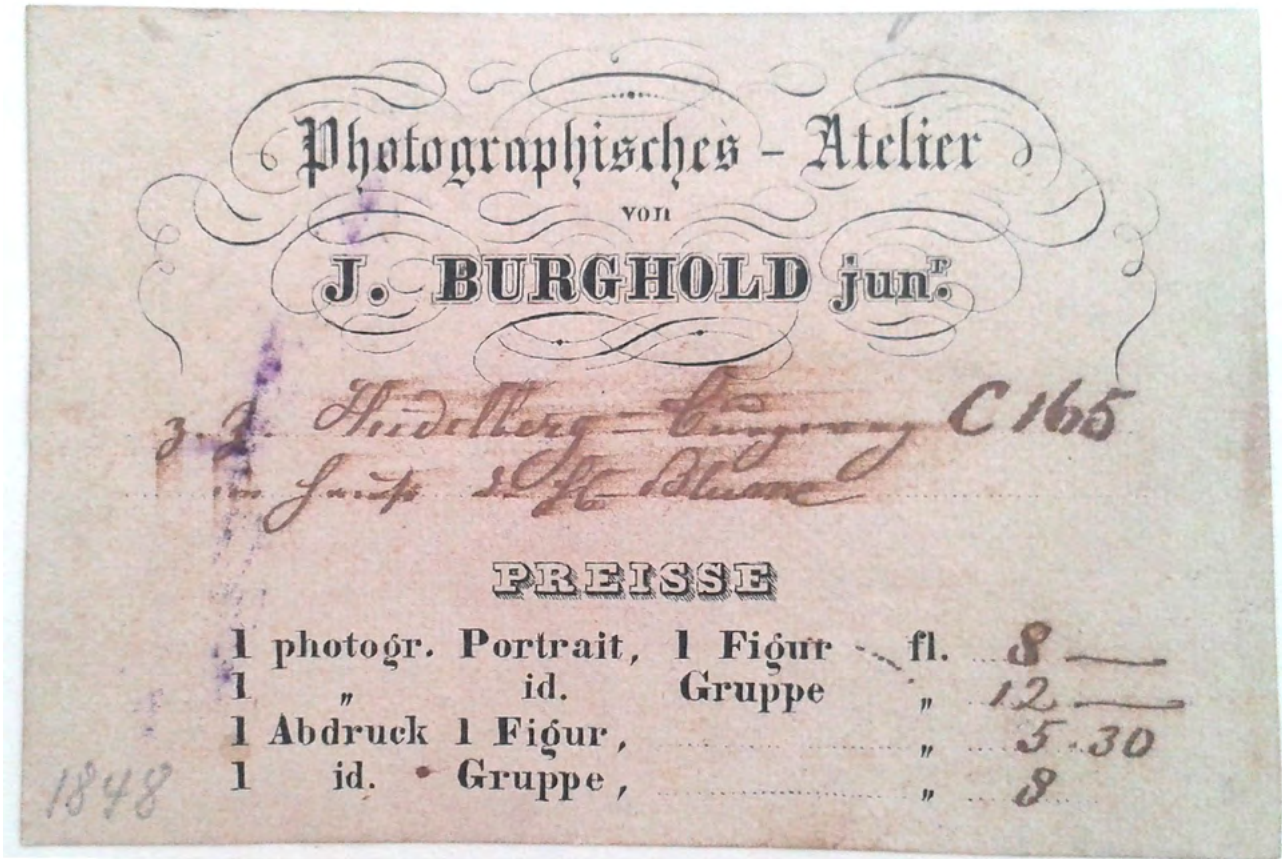 Photographisches - Atelier
von
J. BURGHOLD junr.
z. Z. Heidelberg – C 165
im Hause Blume
PREISSE
1 photogr. Portrait, 1 Figur fl. 8 —
1 „ id. Gruppe „ 12 —
1 Abdruck 1 Figur, „ 5.30
1 id. Gruppe, „ 8
1848